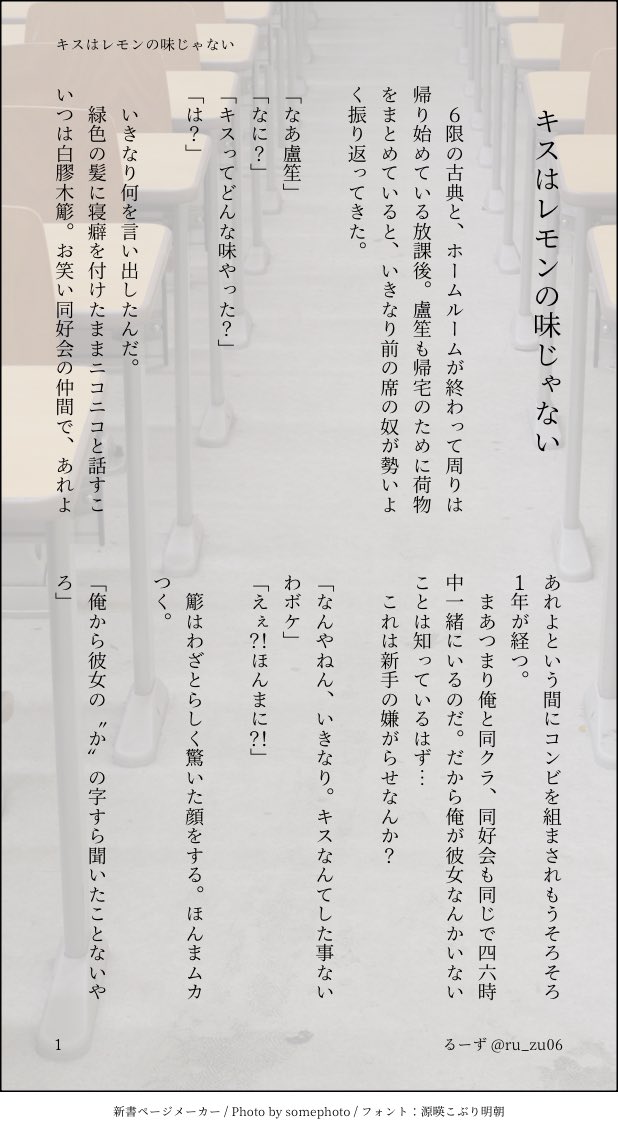 キスはレモンの味じゃない
キスはレモンの味じゃない
６限の古典と、ホームルームが終わって周りは
帰り始めている放課後。盧笙も帰宅のために荷物
をまとめていると、いきなり前の席の奴が勢いよ
く振り返ってきた。
「なあ盧笙」
「なに？」
「キスってどんな味やった？」
「は？」
いきなり何を言い出したんだ。
緑色の髪に寝癖を付けたままニコニコと話すこ
いつは白膠木簓。お笑い同好会の仲間で、あれよ
あれよという間にコンビを組まされもうそろそろ
１年が経つ。
まあつまり俺と同クラ、同好会も同じで四六時
中一緒にいるのだ。だから俺が彼女なんかいない
ことは知っているはず…
これは新手の嫌がらせなんか？
「なんやねん、いきなり。キスなんてした事ない
わボケ」
「えぇ?!ほんまに?!」
簓はわざとらしく驚いた顔をする。ほんまムカ
つく。
「俺から彼女の〝か〟の字すら聞いたことないや
ろ」
1
るーず @ru_zu06
新書ページメーカー / Photo by somephoto / フォント：源暎こぶり明朝